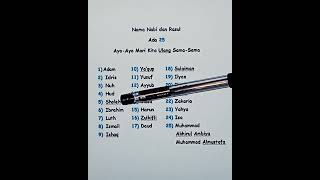 Nama Nabi dan Rasul
Ada 25
Ayo-Ayo Mari Kita Ulang Sama-Sama
1) Adam
2) Idris
3) Nuh
4) Hud
5) Shaleh
6) Ibrahim
7) Luth
8) Ismail
9) Ishaq
10) Ya'qup
11) Yusuf
12) Ayyub
15) Harun
16) Zulkifli
17) Daud
18) Sulaiman
19) Ilyas
22) Zakaria
23) Yahya
24) Isa
25) Muhammad
Akhirul Anbiya
Muhammad Almustofa